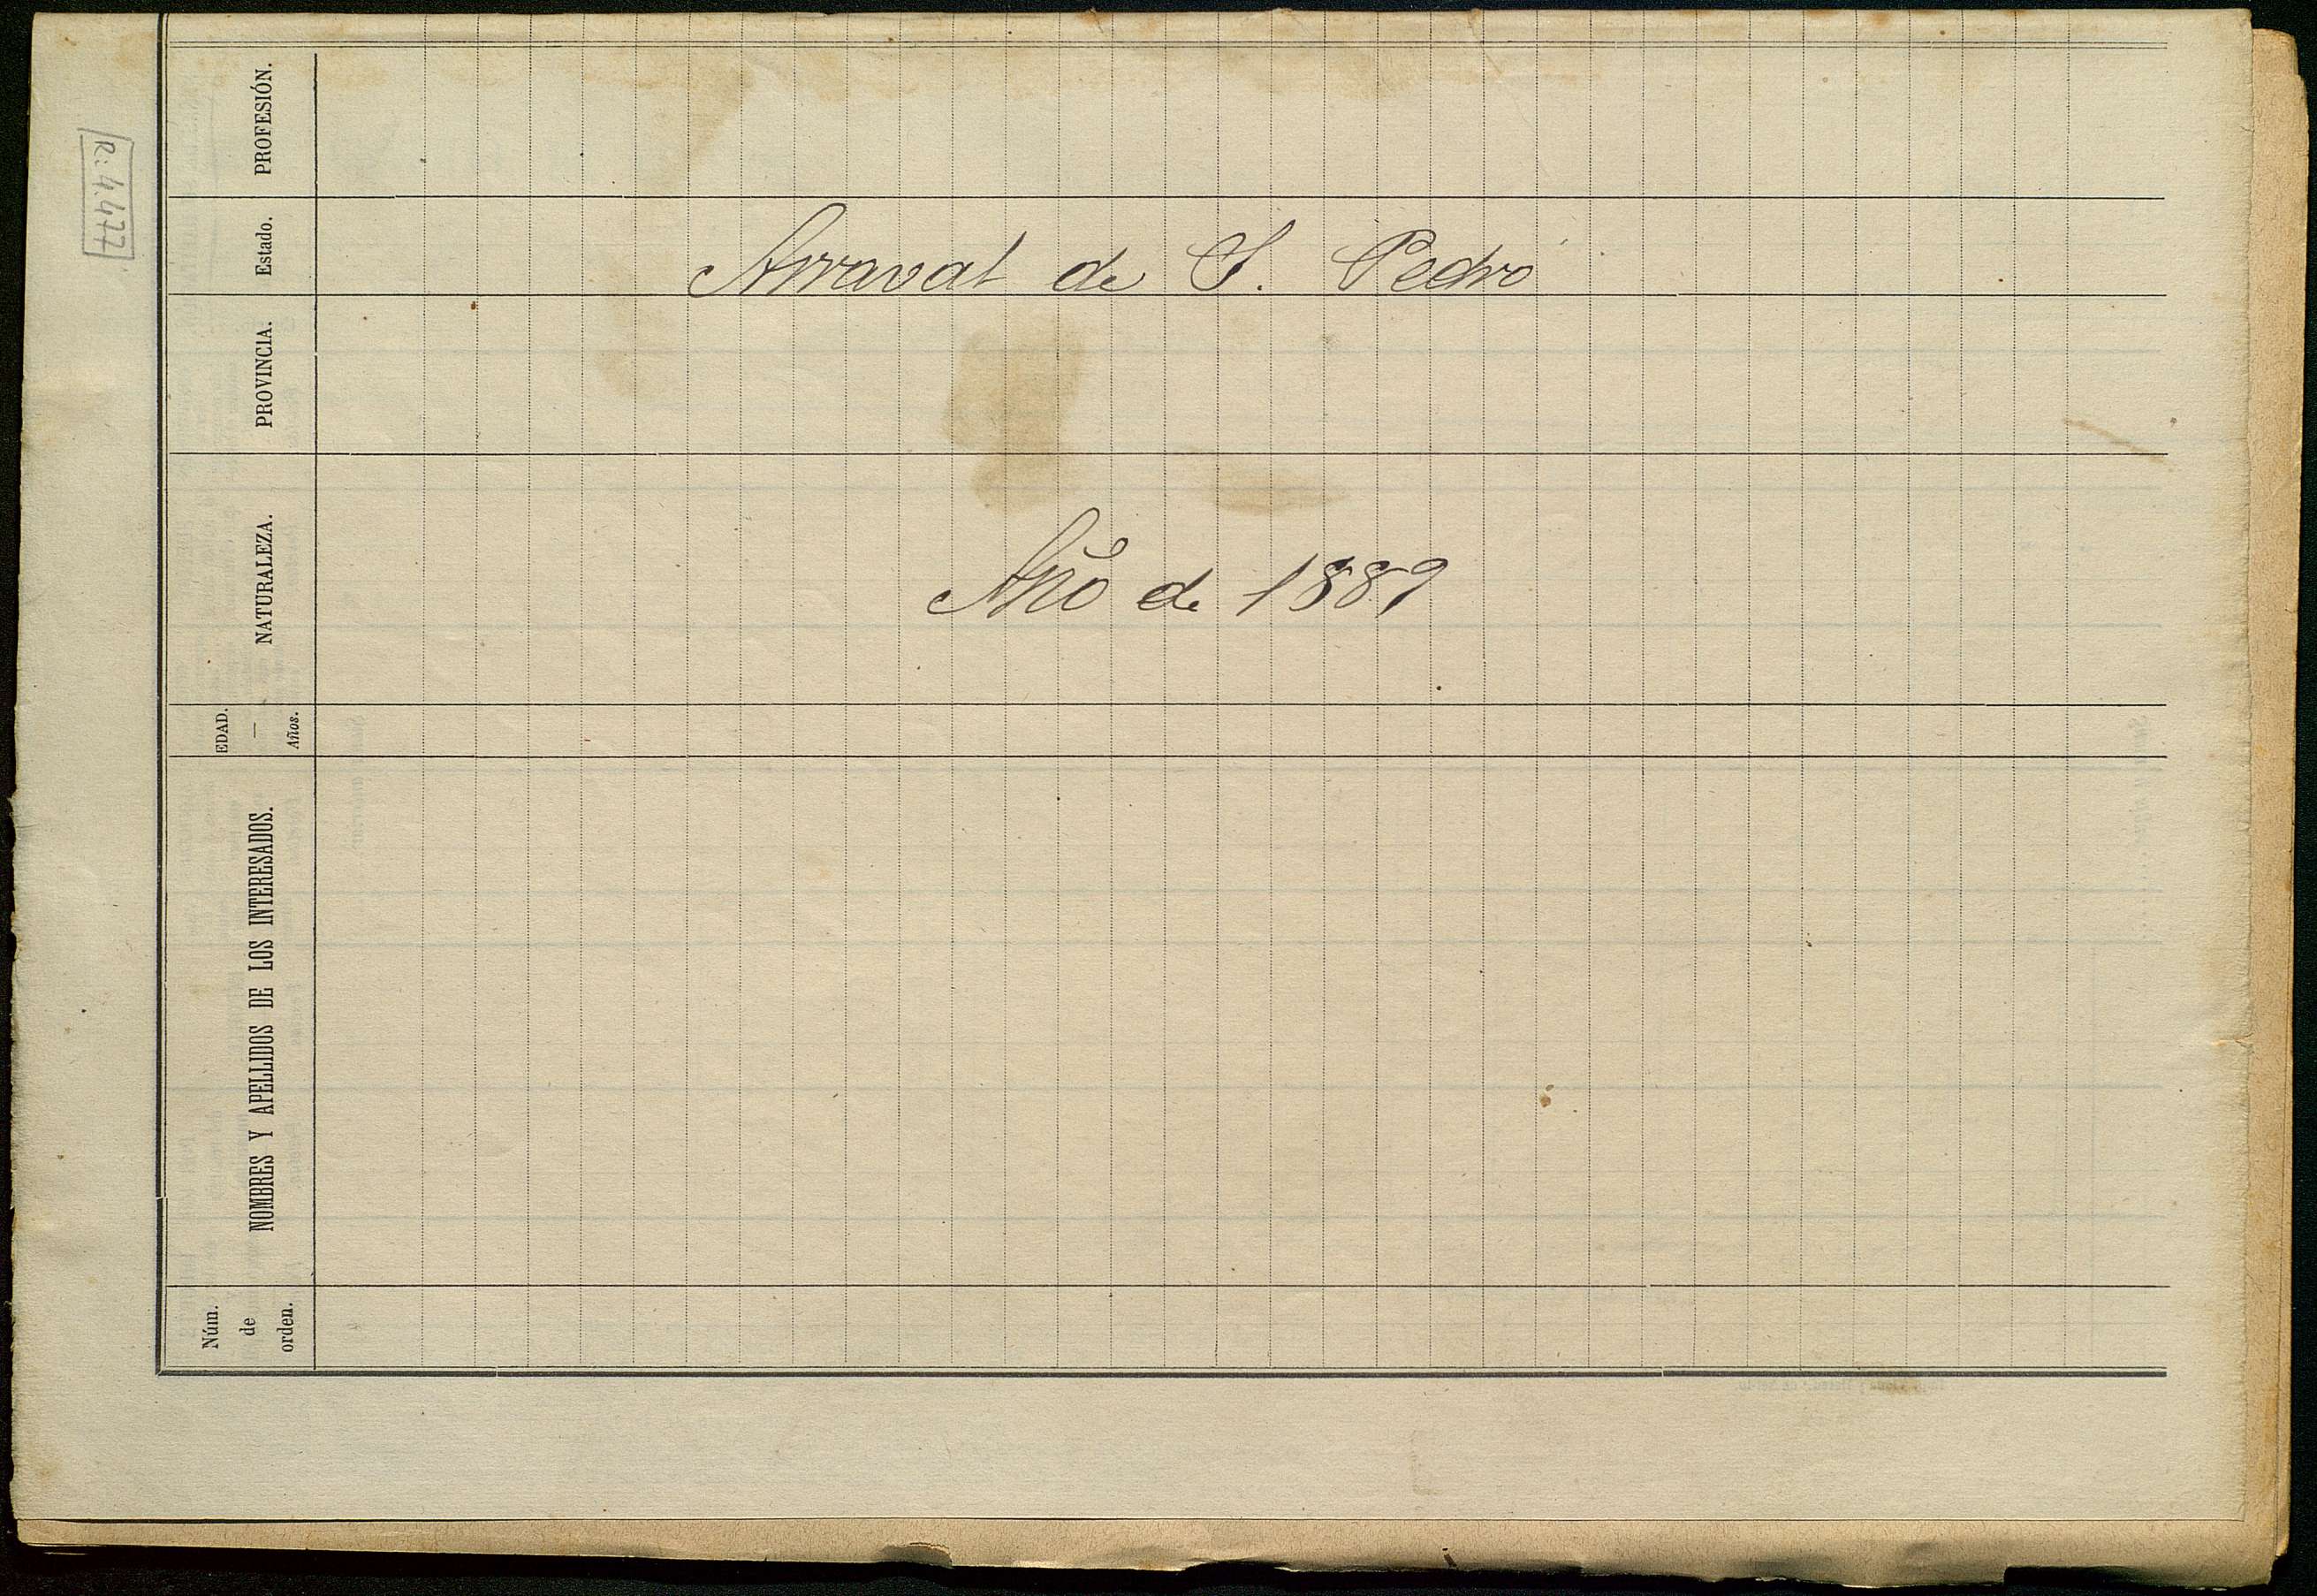 R: 4.477
Arraval de S. Pedro
Año de 1889
PROFESIÓN.
Estado.
PROVINCIA.
NATURALEZA.
EDAD.
—
Años.
NOMBRES Y APELLIDOS DE LOS INTERESADOS.
Núm.
de
orden.